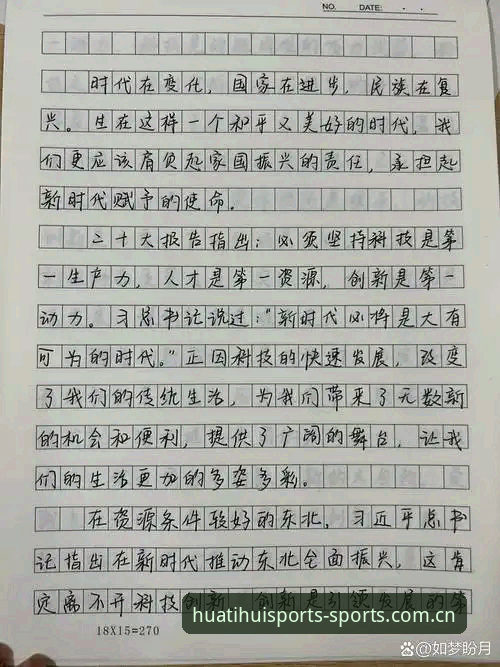 NO. DATE: · ·
时代在变化，国家在进步，民族在复
兴。生在这样一个和平又美好的时代，我
们更应该肩负起家国振兴的责任，承担起
新时代赋予的使命。
二十大报告指出：必须坚持科技是第
一生产力，人才是第一资源，创新是第一
动力。习总书记说过："新时代必将是大有
可为的时代。"正因科技的快速发展，改变
了我们的传统生活，为我们带来了无数新
的机会和便利，提供了广阔的舞台，让我
们的生活更加的多姿多彩。
在资源条件较好的东北，习近平总书
记指出在新时代推动东北全面振兴，这肯
定离不开科技创新，创新是引领发展的第
18X15=270
huatihuisports-sports.com.cn
@如梦盼月